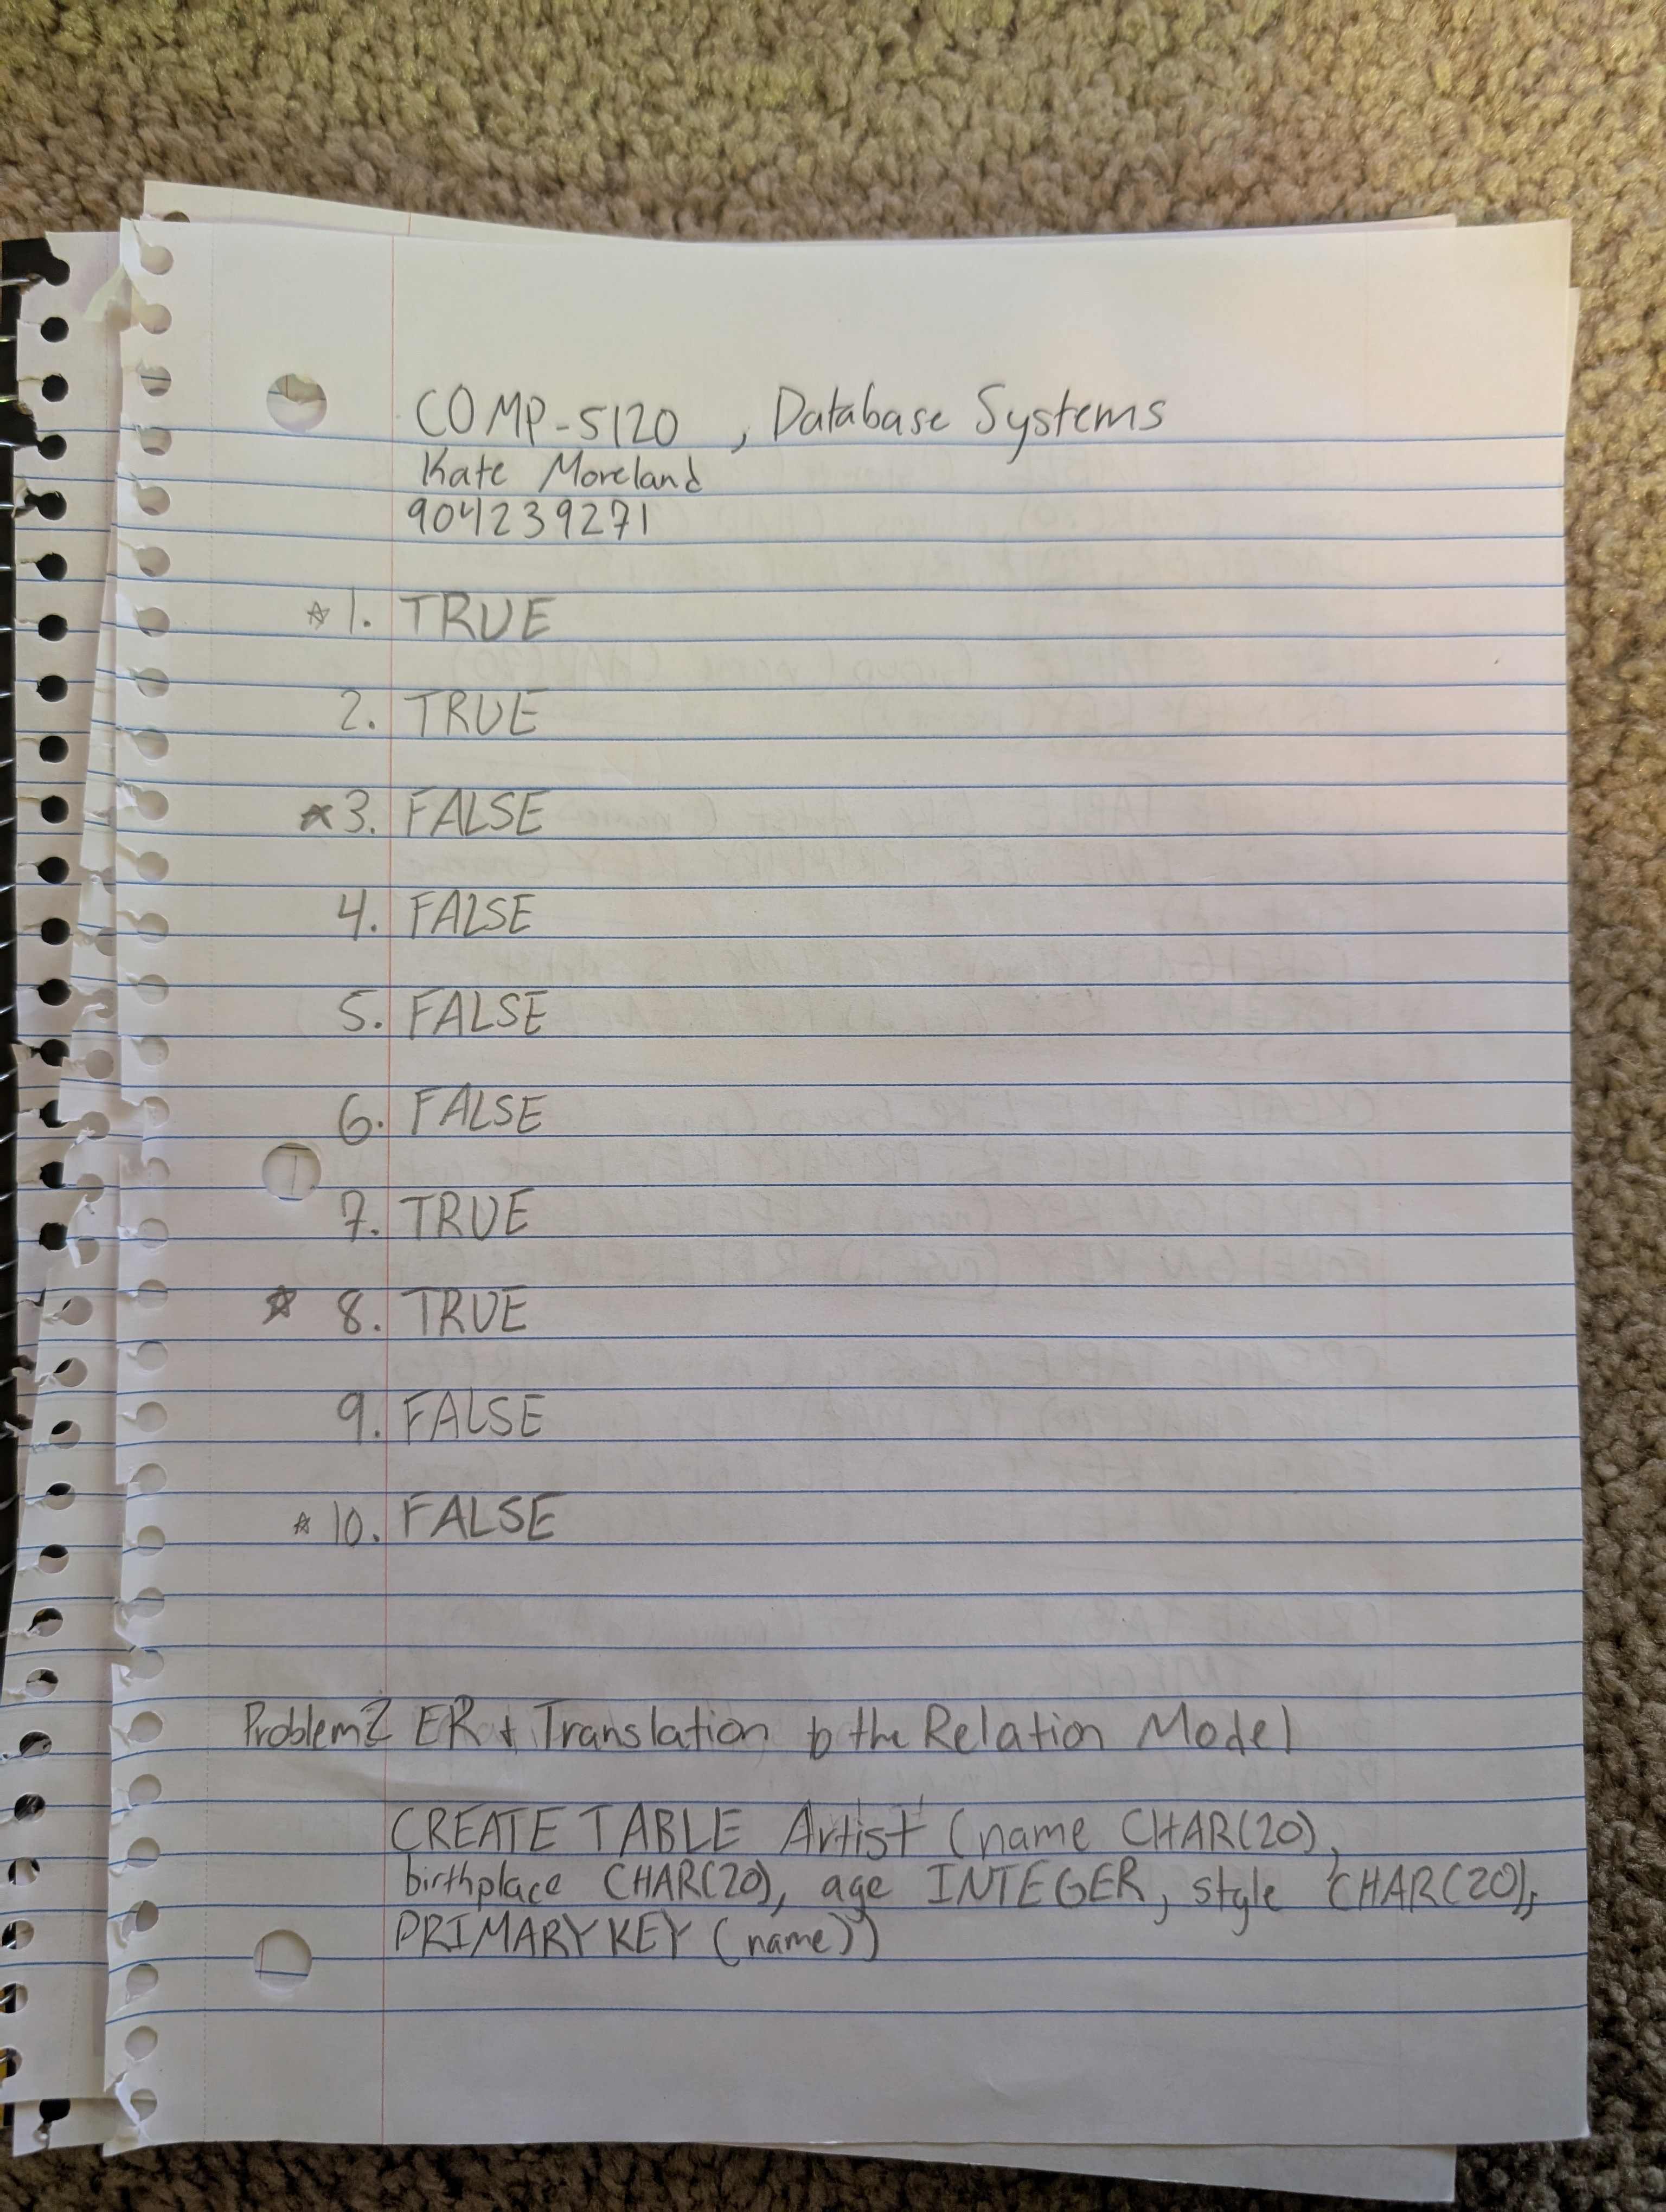 COMP-5120, Database Systems
Kate Moreland
904239271
☆ 1. TRUE
2. TRUE
☆ 3. FALSE
4. FALSE
5. FALSE
6. FALSE
7. TRUE
☆ 8. TRUE
9. FALSE
☆ 10. FALSE
Problem 2 ER & Translation to the Relation Model
CREATE TABLE Artist (name CHAR(20),
birthplace CHAR(20), age INTEGER, style CHAR(20),
PRIMARY KEY (name))